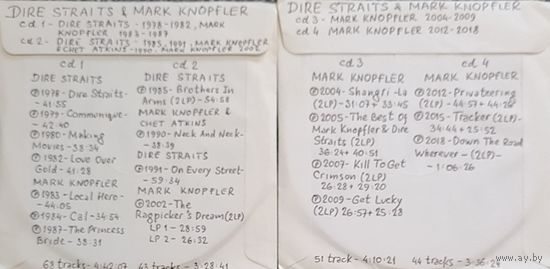 DIRE STRAITS & MARK KNOPFLER
cd 1 - DIRE STRAITS - 1978-1982, MARK
KNOPFLER 1983-1987
cd 2 - DIRE STRAITS - 1985, 1991, MARK KNOPFLER
& CHET ATKINS - 1990, MARK KNOPFLER 2002
cd 1
DIRE STRAITS
℗ 1978 - Dire Straits -
41:55
℗ 1979 - Communique -
42:40
℗ 1980 - Making
Movies - 38:34
℗ 1982 - Love Over
Gold - 41:28
MARK KNOPFLER
℗ 1983 - Local Hero -
44:05
℗ 1984 - Cal - 34:54
℗ 1987 - The Princess
Bride - 38:31
63 tracks - 4:42:07
cd 2
DIRE STRAITS
℗ 1985 - Brothers In
Arms (2LP) - 54:58
MARK KNOPFLER &
CHET ATKINS
℗ 1990 - Neck And Neck -
- 38:39
DIRE STRAITS
℗ 1991 - On Every Street -
- 59:34
MARK KNOPFLER
℗ 2002 - The
Ragpicker's Dream (2LP)
LP 1 - 28:59
LP 2 - 26:32
tracks - 3:28:41
DIRE STRAITS & MARK KNOPFLER
cd 3 - MARK KNOPFLER 2004-2009
cd 4 MARK KNOPFLER 2012-2018
cd 3
MARK KNOPFLER
℗ 2004 - Shangri-La
(2LP) - 31:07 + 33:45
℗ 2005 - The Best Of
Mark Knopfler & Dire
Straits (2LP)
36:24 + 40:51
℗ 2007 - Kill To Get
Crimson (2LP)
26:28 + 29:20
℗ 2009 - Get Lucky
(2LP) 26:57 + 25:28
51 track - 4:10:21
cd 4
MARK KNOPFLER
℗ 2012 - Privateering
(2LP) - 44:57 + 44:28
℗ 2015 - Tracker (2LP) -
34:44 + 25:52
℗ 2018 - Down The Road
Wherever - (2LP) -
- 1:06:26
44 tracks - 3:36:
www.ay.by